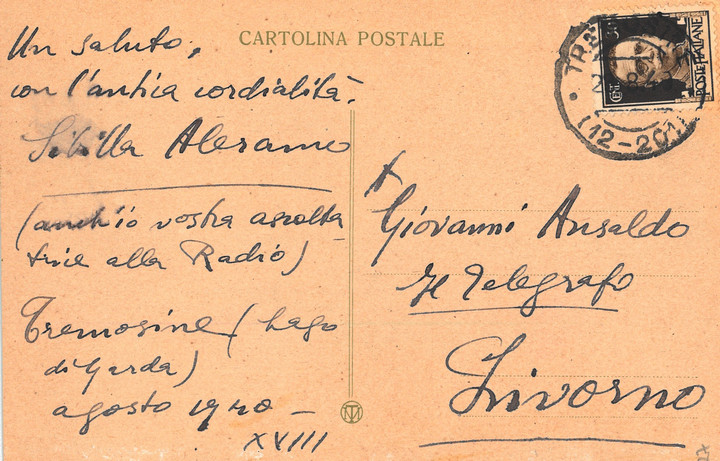 CARTOLINA POSTALE
Un saluto,
con l'antica cordialità.
Sibilla Aleramo
(anch'io vostra ascolta
trice alla Radio)
Tremosine (Lago
di Garda)
agosto 1940 –
XVIII
Giovanni Ansaldo
Il Telegrafo
Livorno
POSTE ITALIANE
CENT.
(12-20)